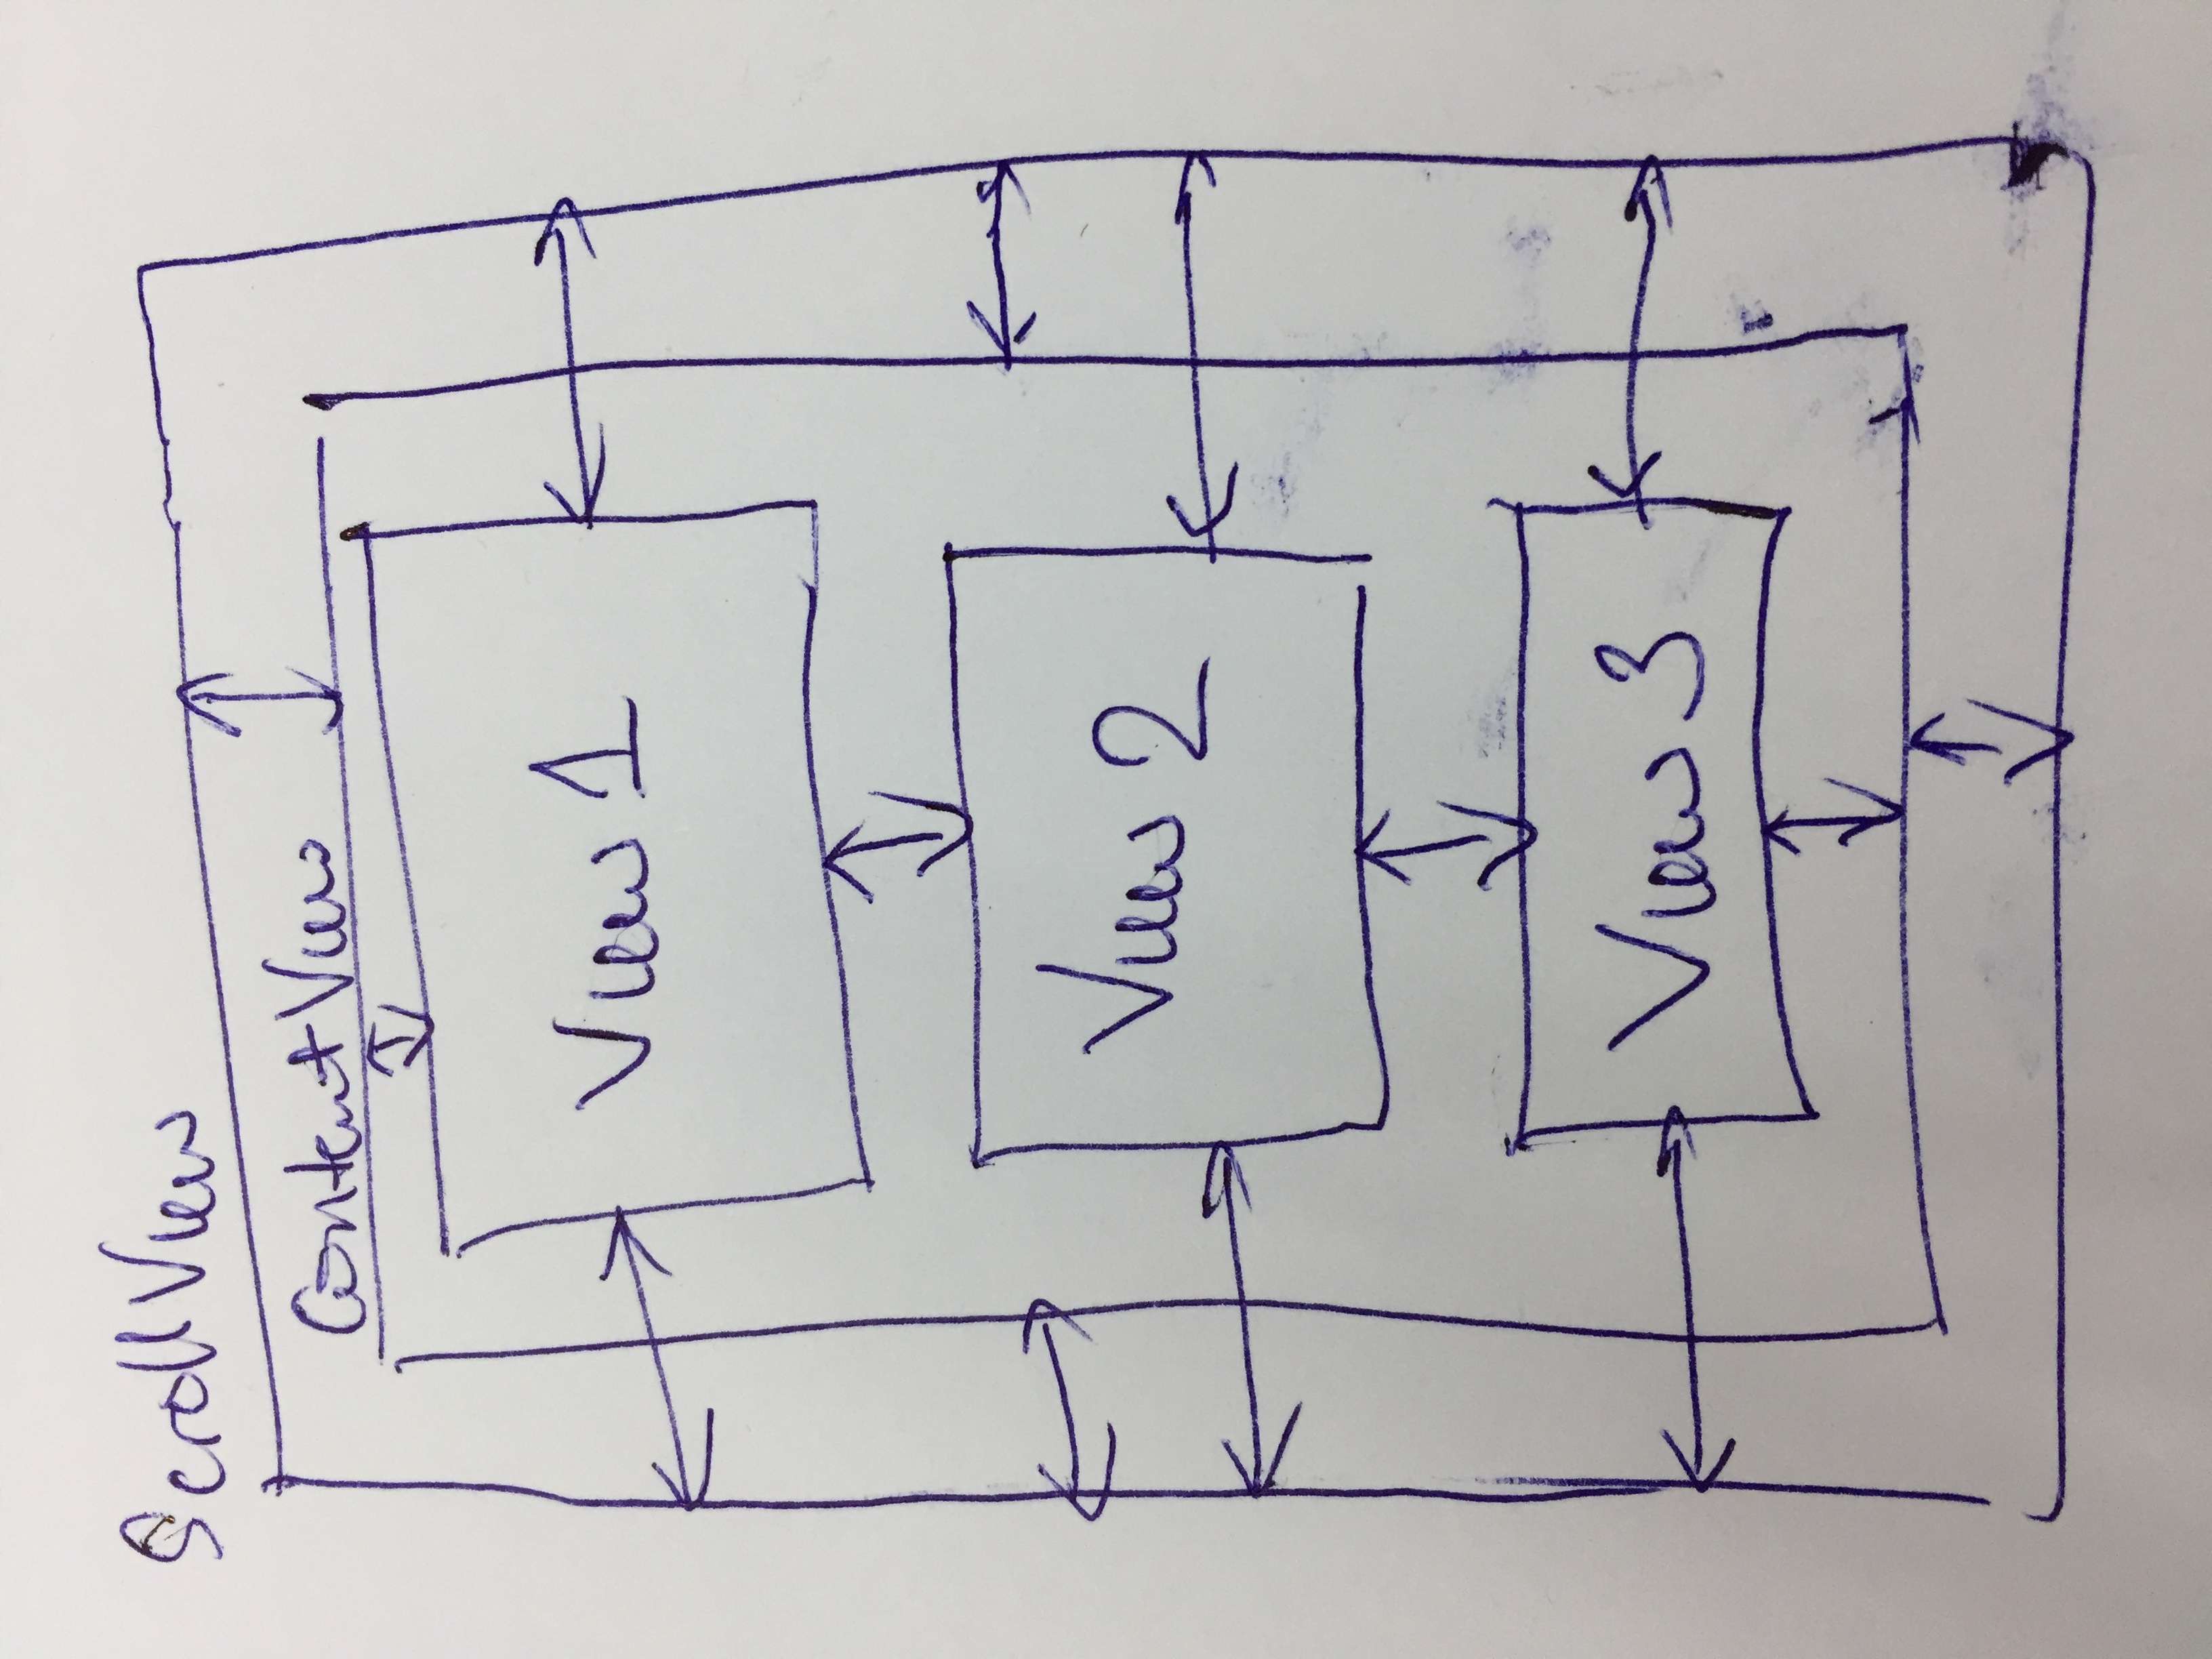 ScrollView
ContentView
View 1
View 2
View 3